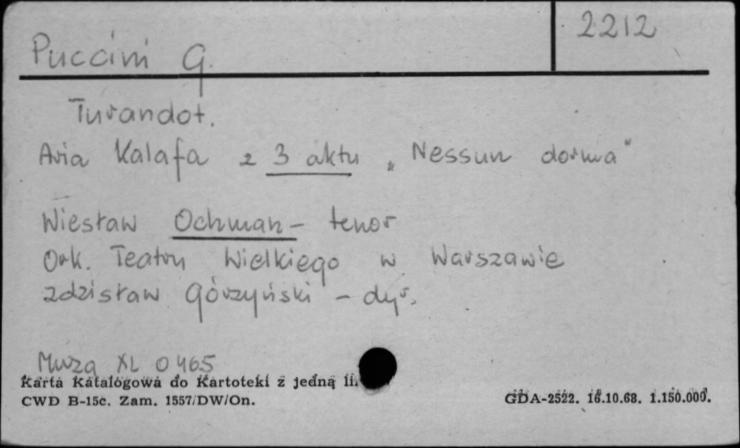 2212
Puccini G.
Turandot.
Aria Kalafa z 3 aktu „Nessun dorma"
Wiesław Ochman - tenor
Ork. Teatru Wielkiego w Warszawie
Zdzisław Górzyński - dyr.
Muza XL 0465
Karta Katalogowa do Kartoteki z jedną
CWD B-15c. Zam. 1557/DW/On.
GDA-2522. 16.10.68. 1.150.000.